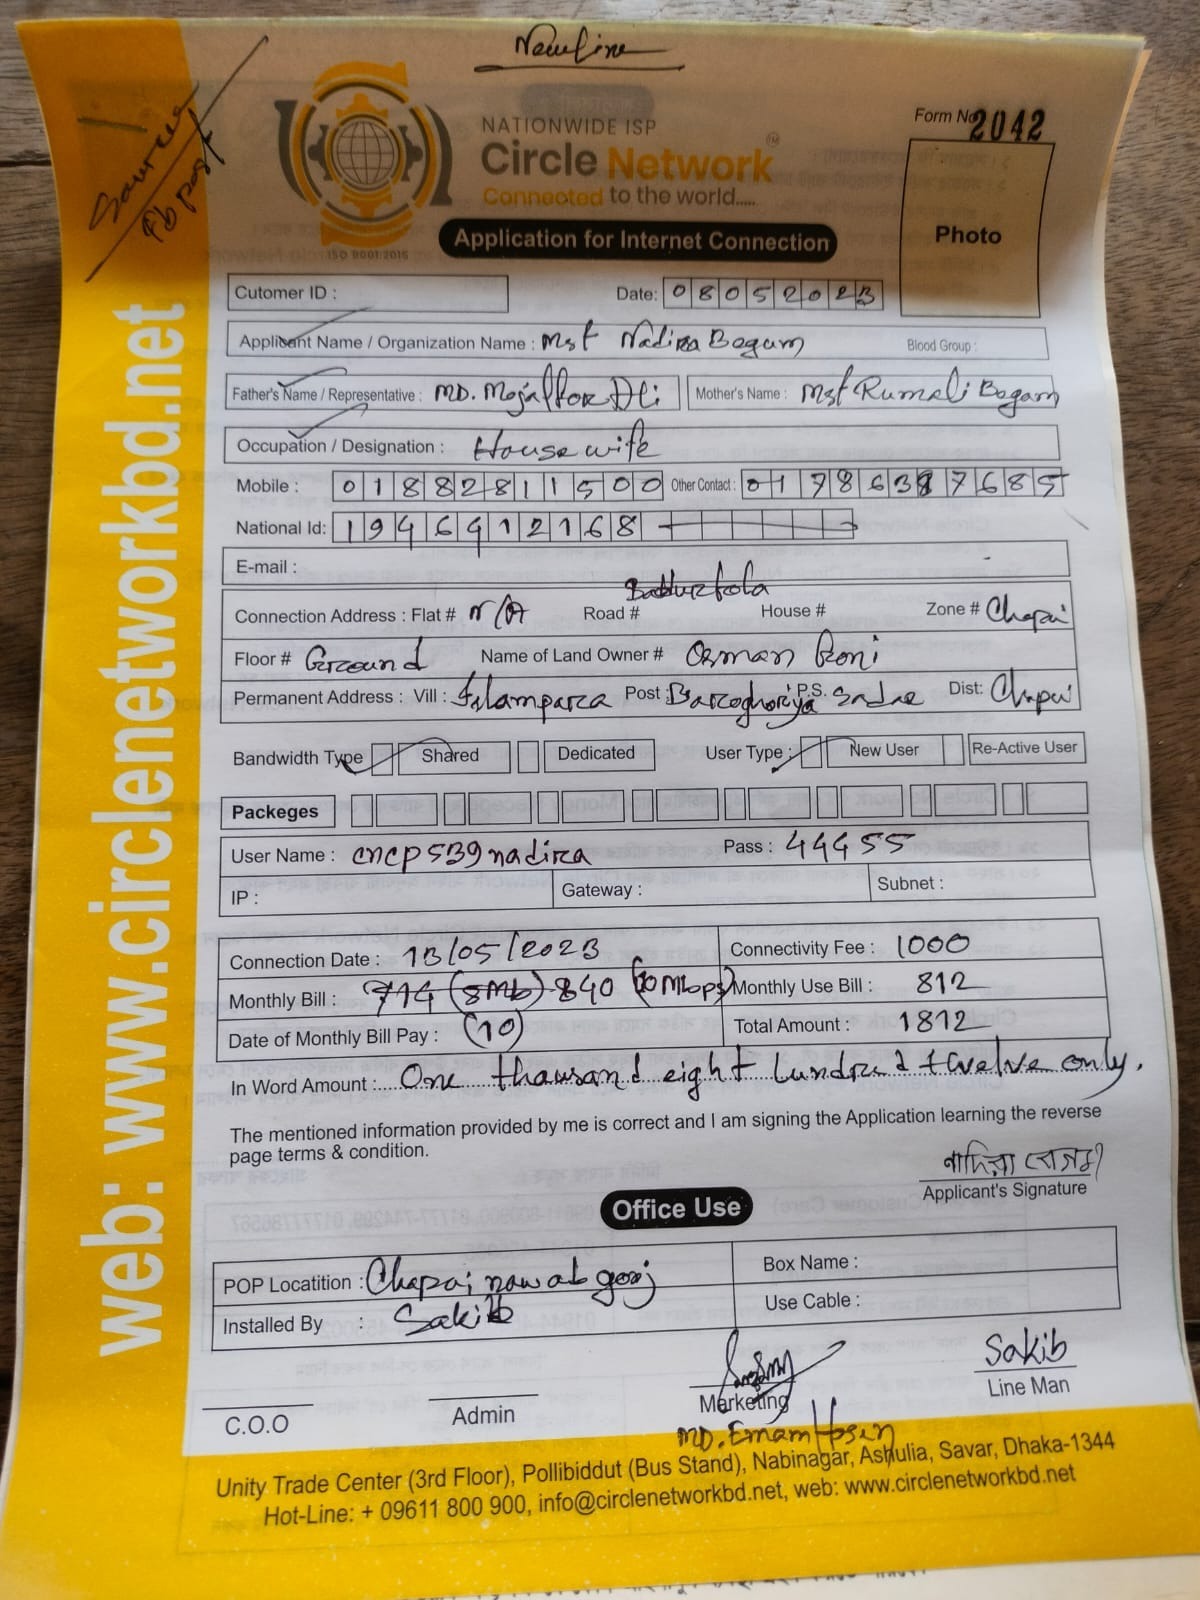 Newline
Fb post
Form No 2042
NATIONWIDE ISP
Circle Network TM
Connected to the world.....
ISO 9001:2015
Application for Internet Connection
Photo
Cutomer ID :
Date: 08052023
Applicant Name / Organization Name : Mst Nadira Begum Blood Group :
Father's Name / Representative : MD. Mojaffor Ali Mother's Name : Mst Rumali Begam
Occupation / Designation : House wife
Mobile : 01882811500 Other Contact :
National Id: 1946912168
E-mail :
Connection Address : Flat # N/A Road # House # Zone # Chapai
Floor # Ground Name of Land Owner # Osman Roni
Permanent Address : Vill : Islampara Post : Baroghoriya P.S. Sadar Dist: Chapai
Bandwidth Type Shared Dedicated User Type : New User Re-Active User
Packeges
User Name : cncp539nadira Pass : 44455
IP : Gateway : Subnet :
Connection Date : 13/05/2023 Connectivity Fee : 1000
Monthly Bill : 714 (8Mb) 840 (10 Mbps) Monthly Use Bill : 812
Date of Monthly Bill Pay : (10) Total Amount : 1812
In Word Amount : One thousand eight hundred twelve only.
The mentioned information provided by me is correct and I am signing the Application learning the reverse
page terms & condition.
নাদিরা বেগম
Applicant's Signature
Office Use
POP Locatition : Chapai nawabgonj Box Name :
Installed By : Sakib Use Cable :
Sakib
C.O.O Admin Marketing Line Man
MD. Emam Hosen
Unity Trade Center (3rd Floor), Pollibiddut (Bus Stand), Nabinagar, Ashulia, Savar, Dhaka-1344
Hot-Line: + 09611 800 900, info@circlenetworkbd.net, web: www.circlenetworkbd.net
web: www.circlenetworkbd.net